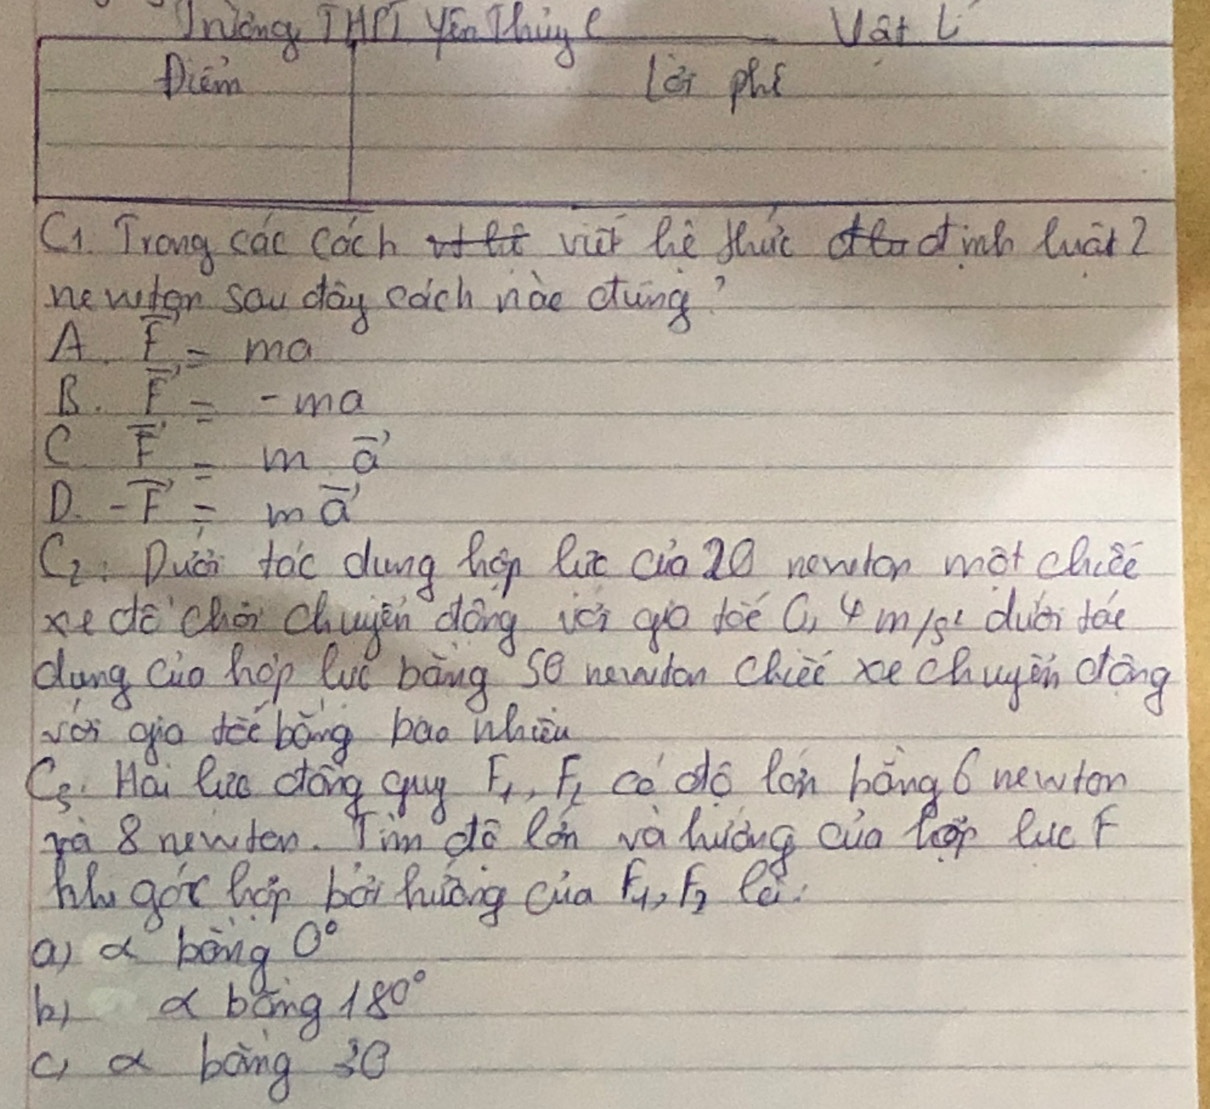 Trường THPT Yên Thủy C Vật Lí
Điểm Lời phê
C1. Trong các cách viết hệ thức định luật 2
newton sau đây cách nào đúng?
A. F⃗ = ma
B. F⃗ = -ma
C. F⃗ = m a⃗
D. -F⃗ = m a⃗
C2: Dưới tác dụng hợp lực của 20 newton một chiếc
xe đồ chơi chuyển động với gia tốc 0,4 m/s² dưới tác
dụng của hợp lực bằng 50 newton chiếc xe chuyển động
với gia tốc bằng bao nhiêu
C3. Hai lực đồng quy F1, F2 có độ lớn bằng 6 newton
và 8 newton. Tìm độ lớn và hướng của hợp lực F
khi góc hợp bởi hướng của F1, F2 là:
a) α bằng 0°
b) α bằng 180°
c) α bằng 30